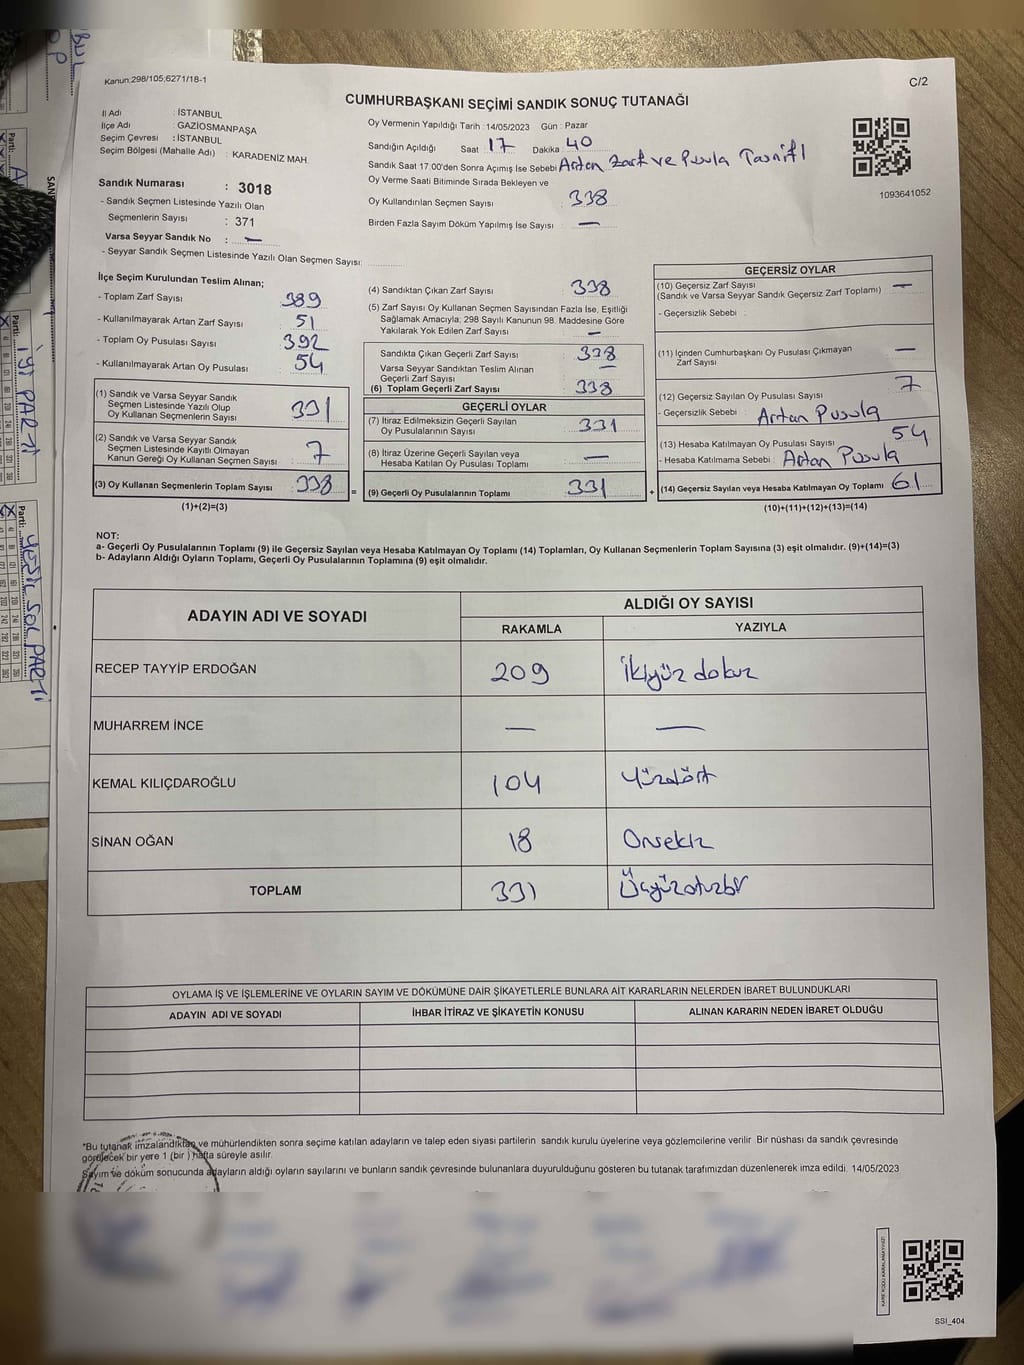 Kanun:298/105;6271/18-1
C/2
CUMHURBAŞKANI SEÇİMİ SANDIK SONUÇ TUTANAĞI
İl Adı : İSTANBUL
İlçe Adı : GAZİOSMANPAŞA
Seçim Çevresi : İSTANBUL
Seçim Bölgesi (Mahalle Adı) : KARADENİZ MAH.
Sandık Numarası : 3018
- Sandık Seçmen Listesinde Yazılı Olan
Seçmenlerin Sayısı : 371
Varsa Seyyar Sandık No : —
- Seyyar Sandık Seçmen Listesinde Yazılı Olan Seçmen Sayısı:
Oy Vermenin Yapıldığı Tarih : 14/05/2023 Gün : Pazar
Sandığın Açıldığı Saat 17 Dakika 40
Sandık Saat 17.00'den Sonra Açımış İse Sebebi Artan Zarf ve Pusula Tasnifi
Oy Verme Saati Bitiminde Sırada Bekleyen ve
Oy Kullandırılan Seçmen Sayısı : 338
Birden Fazla Sayım Döküm Yapılmış İse Sayısı : —
1093641052
İlçe Seçim Kurulundan Teslim Alınan;
- Toplam Zarf Sayısı : 389
- Kullanılmayarak Artan Zarf Sayısı : 51
- Toplam Oy Pusulası Sayısı : 392
- Kullanılmayarak Artan Oy Pusulası : 54
(1) Sandık ve Varsa Seyyar Sandık
Seçmen Listesinde Yazılı Olup
Oy Kullanan Seçmenlerin Sayısı : 331
(2) Sandık ve Varsa Seyyar Sandık
Seçmen Listesinde Kayıtlı Olmayan
Kanun Gereği Oy Kullanan Seçmen Sayısı : 7
(3) Oy Kullanan Seçmenlerin Toplam Sayısı : 338
(1)+(2)=(3)
=
(4) Sandıktan Çıkan Zarf Sayısı : 338
(5) Zarf Sayısı Oy Kullanan Seçmen Sayısından Fazla İse, Eşitliği
Sağlamak Amacıyla; 298 Sayılı Kanunun 98. Maddesine Göre
Yakılarak Yok Edilen Zarf Sayısı : —
Sandıkta Çıkan Geçerli Zarf Sayısı : 338
Varsa Seyyar Sandıktan Teslim Alınan
Geçerli Zarf Sayısı : —
(6) Toplam Geçerli Zarf Sayısı : 338
GEÇERLİ OYLAR
(7) İtiraz Edilmeksizin Geçerli Sayılan
Oy Pusulalarının Sayısı : 331
(8) İtiraz Üzerine Geçerli Sayılan veya
Hesaba Katılan Oy Pusulası Toplamı : —
(9) Geçerli Oy Pusulalarının Toplamı : 331
+
GEÇERSİZ OYLAR
(10) Geçersiz Zarf Sayısı : —
(Sandık ve Varsa Seyyar Sandık Geçersiz Zarf Toplamı)
- Geçersizlik Sebebi :
(11) İçinden Cumhurbaşkanı Oy Pusulası Çıkmayan
Zarf Sayısı : —
(12) Geçersiz Sayılan Oy Pusulası Sayısı : 7
- Geçersizlik Sebebi : Artan Pusula
(13) Hesaba Katılmayan Oy Pusulası Sayısı : 54
- Hesaba Katılmama Sebebi : Artan Pusula
(14) Geçersiz Sayılan veya Hesaba Katılmayan Oy Toplamı : 61
(10)+(11)+(12)+(13)=(14)
NOT:
a- Geçerli Oy Pusulalarının Toplamı (9) ile Geçersiz Sayılan veya Hesaba Katılmayan Oy Toplamı (14) Toplamları, Oy Kullanan Seçmenlerin Toplam Sayısına (3) eşit olmalıdır. (9)+(14)=(3)
b- Adayların Aldığı Oyların Toplamı, Geçerli Oy Pusulalarının Toplamına (9) eşit olmalıdır.
ADAYIN ADI VE SOYADI
ALDIĞI OY SAYISI
RAKAMLA YAZIYLA
RECEP TAYYİP ERDOĞAN 209 İkiyüz dokuz
MUHARREM İNCE — —
KEMAL KILIÇDAROĞLU 104 Yüzdört
SİNAN OĞAN 18 Onsekiz
TOPLAM 331 Üçyüzotuzbir
OYLAMA İŞ VE İŞLEMLERİNE VE OYLARIN SAYIM VE DÖKÜMÜNE DAİR ŞİKAYETLERLE BUNLARA AİT KARARLARIN NELERDEN İBARET BULUNDUKLARI
ADAYIN ADI VE SOYADI İHBAR İTİRAZ VE ŞİKAYETİN KONUSU ALINAN KARARIN NEDEN İBARET OLDUĞU
*Bu tutanak imzalandıktan ve mühürlendikten sonra seçime katılan adayların ve talep eden siyasi partilerin sandık kurulu üyelerine veya gözlemcilerine verilir. Bir nüshası da sandık çevresinde
görülecek bir yere 1 (bir) hafta süreyle asılır.
Sayım ve döküm sonucunda adayların aldığı oyların sayılarını ve bunların sandık çevresinde bulunanlara duyurulduğunu gösteren bu tutanak tarafımızdan düzenlenerek imza edildi. 14/05/2023
SSI_404
Parti: İYİ PARTİ
Parti: YEŞİL SOL PARTİ